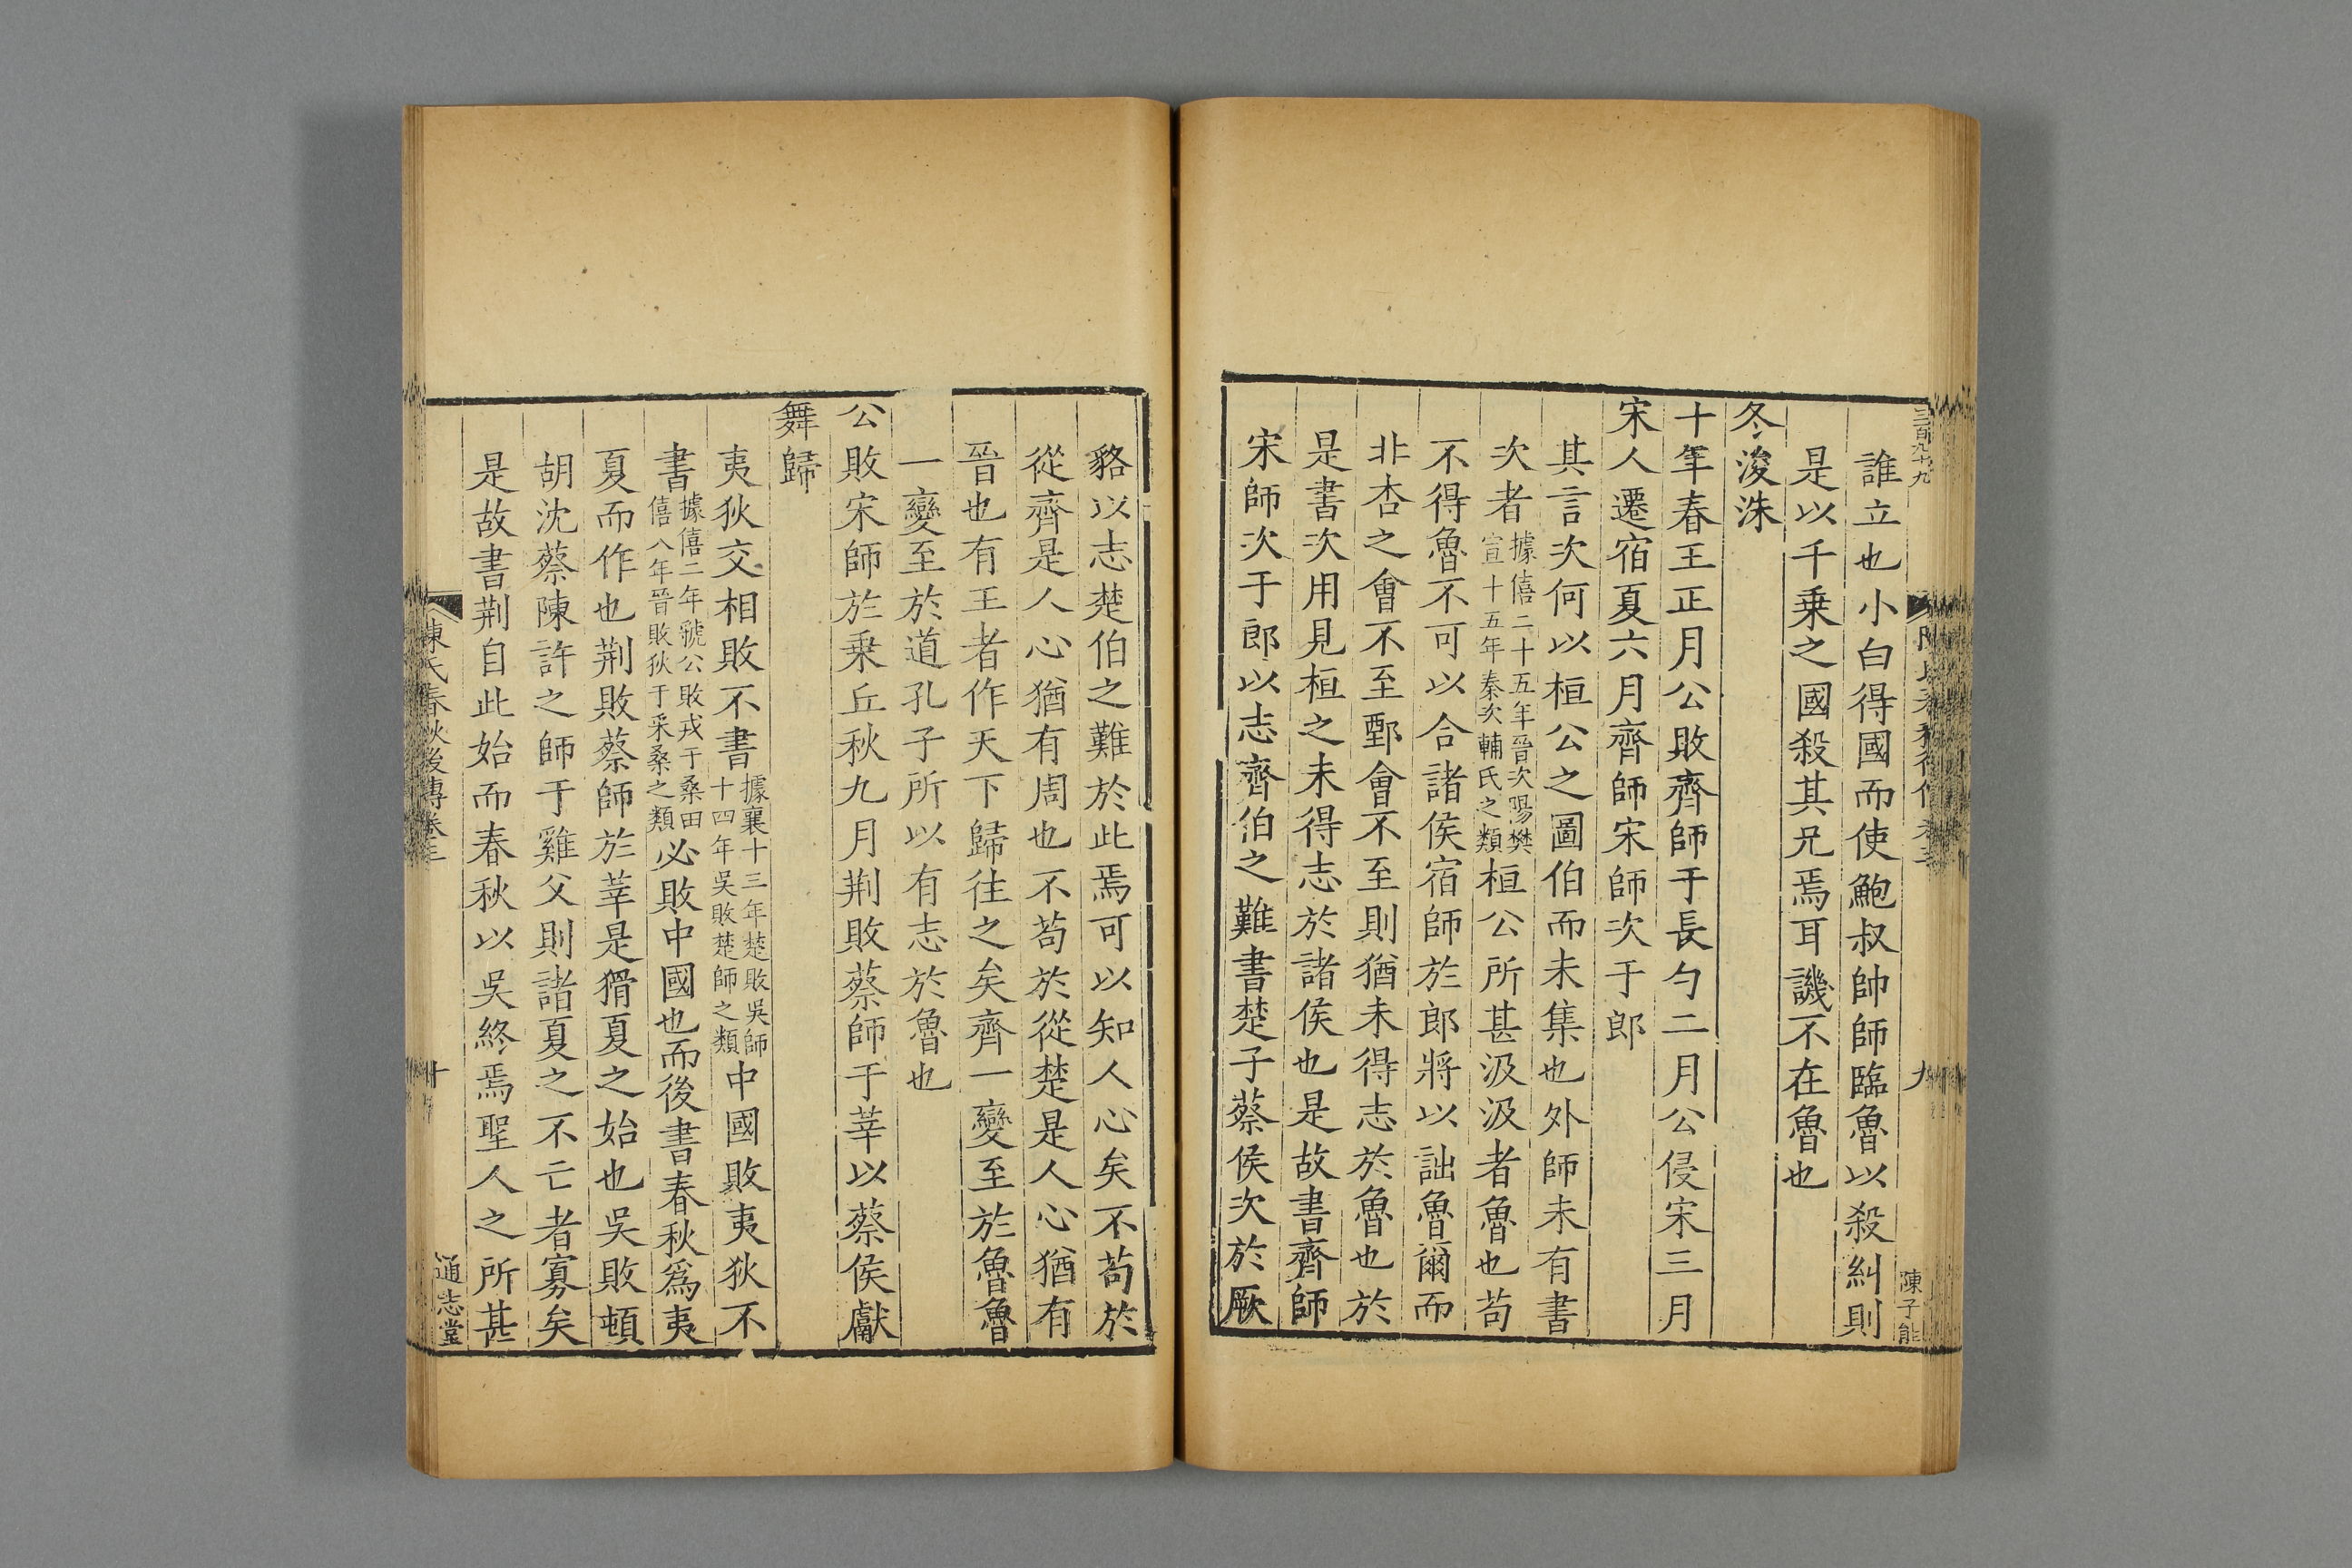 三百九十九
陳子能
九
誰立也小白得國而使鮑叔帥師臨魯以殺糾則
是以千乗之國殺其兄焉耳譏不在魯也
冬浚洙
十年春王正月公敗齊師于長勺二月公侵宋三月
宋人遷宿夏六月齊師宋師次于郎
其言次何以桓公之圖伯而未集也外師未有書
次者據僖二十五年晉次陽樊宣十五年秦次輔氏之類桓公所甚汲汲者魯也苟
不得魯不可以合諸侯宿師於郎將以詘魯爾而
非杏之會不至鄄會不至則猶未得志於魯也於
是書次用見桓之未得志於諸侯也是故書齊師
宋師次于郎以志齊伯之難書楚子蔡侯次於厥
貉以志楚伯之難於此焉可以知人心矣不苟於
從齊是人心猶有周也不苟於從楚是人心猶有
晉也有王者作天下歸往之矣齊一變至於魯魯
一變至於道孔子所以有志於魯也
公敗宋師於乗丘秋九月荆敗蔡師于莘以蔡侯獻
舞歸
夷狄交相敗不書據襄十三年楚敗吳師十四年吳敗楚師之類中國敗夷狄不
書據僖二年虢公敗戎于桑田僖八年晉敗狄于采桑之類必敗中國也而後書春秋爲夷
夏而作也荆敗蔡師於莘是猾夏之始也吳敗頓
胡沈蔡陳許之師于雞父則諸夏之不亡者寡矣
是故書荆自此始而春秋以吳終焉聖人之所甚
陳氏春秋後傳卷三
十
通志堂